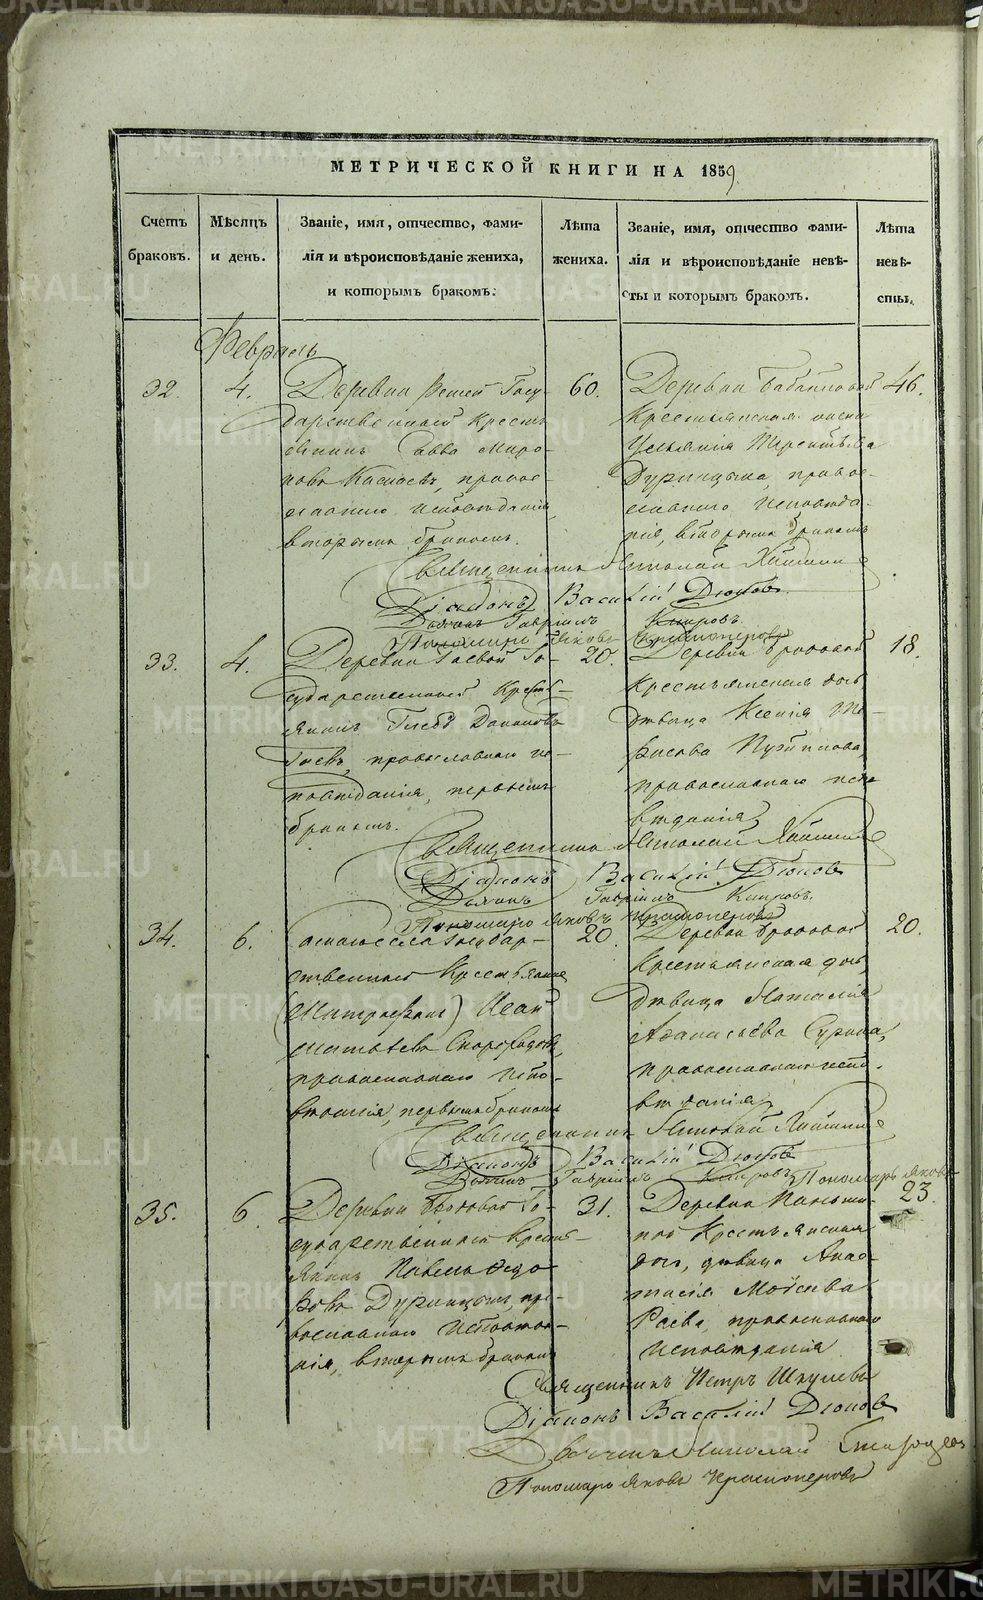 МЕТРИЧЕСКОЙ КНИГИ НА 1859
Счетъ браковъ.
Мѣсяцъ и день.
Званіе, имя, отчество, фами-
лія и вѣроисповѣданіе жениха,
и которымъ бракомъ:
Лѣта жениха.
Званіе, имя, отчество фами-
лія и вѣроисповѣданіе невѣ-
сты и которымъ бракомъ.
Лѣта невѣ-
сты.
Февраль
32.
4.
Деревни Госу-
дарственный кресть
янинъ Савва Миро-
новъ, право-
славнаго исповѣданія,
вторымъ бракомъ.
60.
Деревни
Крестьянская
Терентьева
Дурницына, право-
славнаго исповѣда-
нія, вторымъ бракомъ
46.
Священникъ Николай
Діаконъ Василій Дюковъ
Дьячекъ Гавріилъ Каировъ
Пономарь Яковъ Красноперовъ
33.
4.
Деревни Гаевой Го-
сударственный Кресть-
янинъ Глѣбъ
Гаевъ, православнаго ис-
повѣданія, первымъ
бракомъ.
20.
Деревни Бродовой
Крестьянская дочь
дѣвица Ксенія
православнаго испо
вѣданія
18.
Священникъ Николай
Діаконъ Василій Дюковъ
Дьячекъ Гавріилъ Каировъ.
Пономарь Яковъ Красноперовъ
34.
6.
села Государ-
ственный Крестьянинъ
Иванъ
Матвѣевъ Скороходовъ,
православнаго испо-
вѣданія, первымъ бракомъ
20.
Деревни Бродовой
Крестьянская дочь,
дѣвица Наталія
Аѳанасьева Сурина,
православнаго испо-
вѣданія
20.
Священникъ Николай
Діаконъ Василій Дюковъ
Дьячекъ Гавріилъ Каировъ Пономарь Яковъ
35.
6.
Деревни Бродовой Го-
сударственный кресть-
янинъ Павелъ Ѳедо
ровъ Дурницынъ, пра-
вославнаго исповѣда-
нія, вторымъ бракомъ
31.
Деревни
Крестьянская
дочь, дѣвица Анас-
тасія Моисеева
Раева, православнаго
исповѣданія
23.
Священникъ Петръ Шкулевъ
Діаконъ Василій Дюковъ
Дьячекъ Николай
Пономарь Яковъ Красноперовъ
METRIKI.GASO-URAL.RU